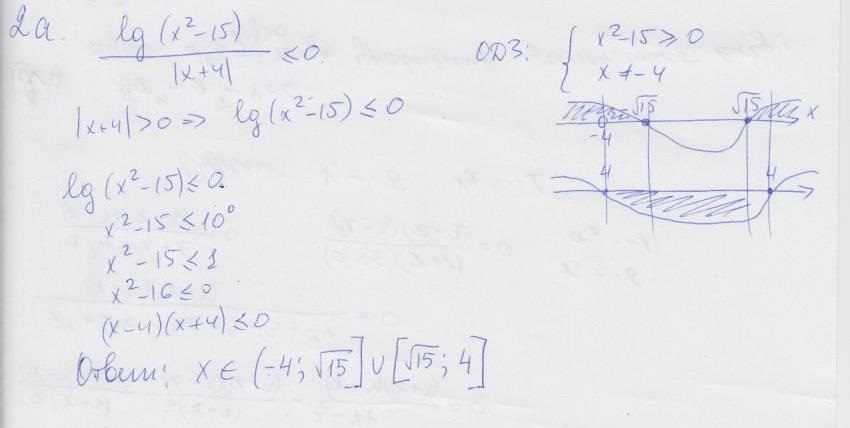 2а. lg (x²-15) / |x+4| ≤ 0.
ОДЗ: { x²-15 ≥ 0
x ≠ -4
|x+4| > 0 => lg (x²-15) ≤ 0
√15 √15 x
-4
4 4
lg (x²-15) ≤ 0.
x²-15 ≤ 10⁰
x²-15 ≤ 1
x²-16 ≤ 0
(x-4)(x+4) ≤ 0
Ответ: x ∈ (-4; √15] ∪ [√15; 4]